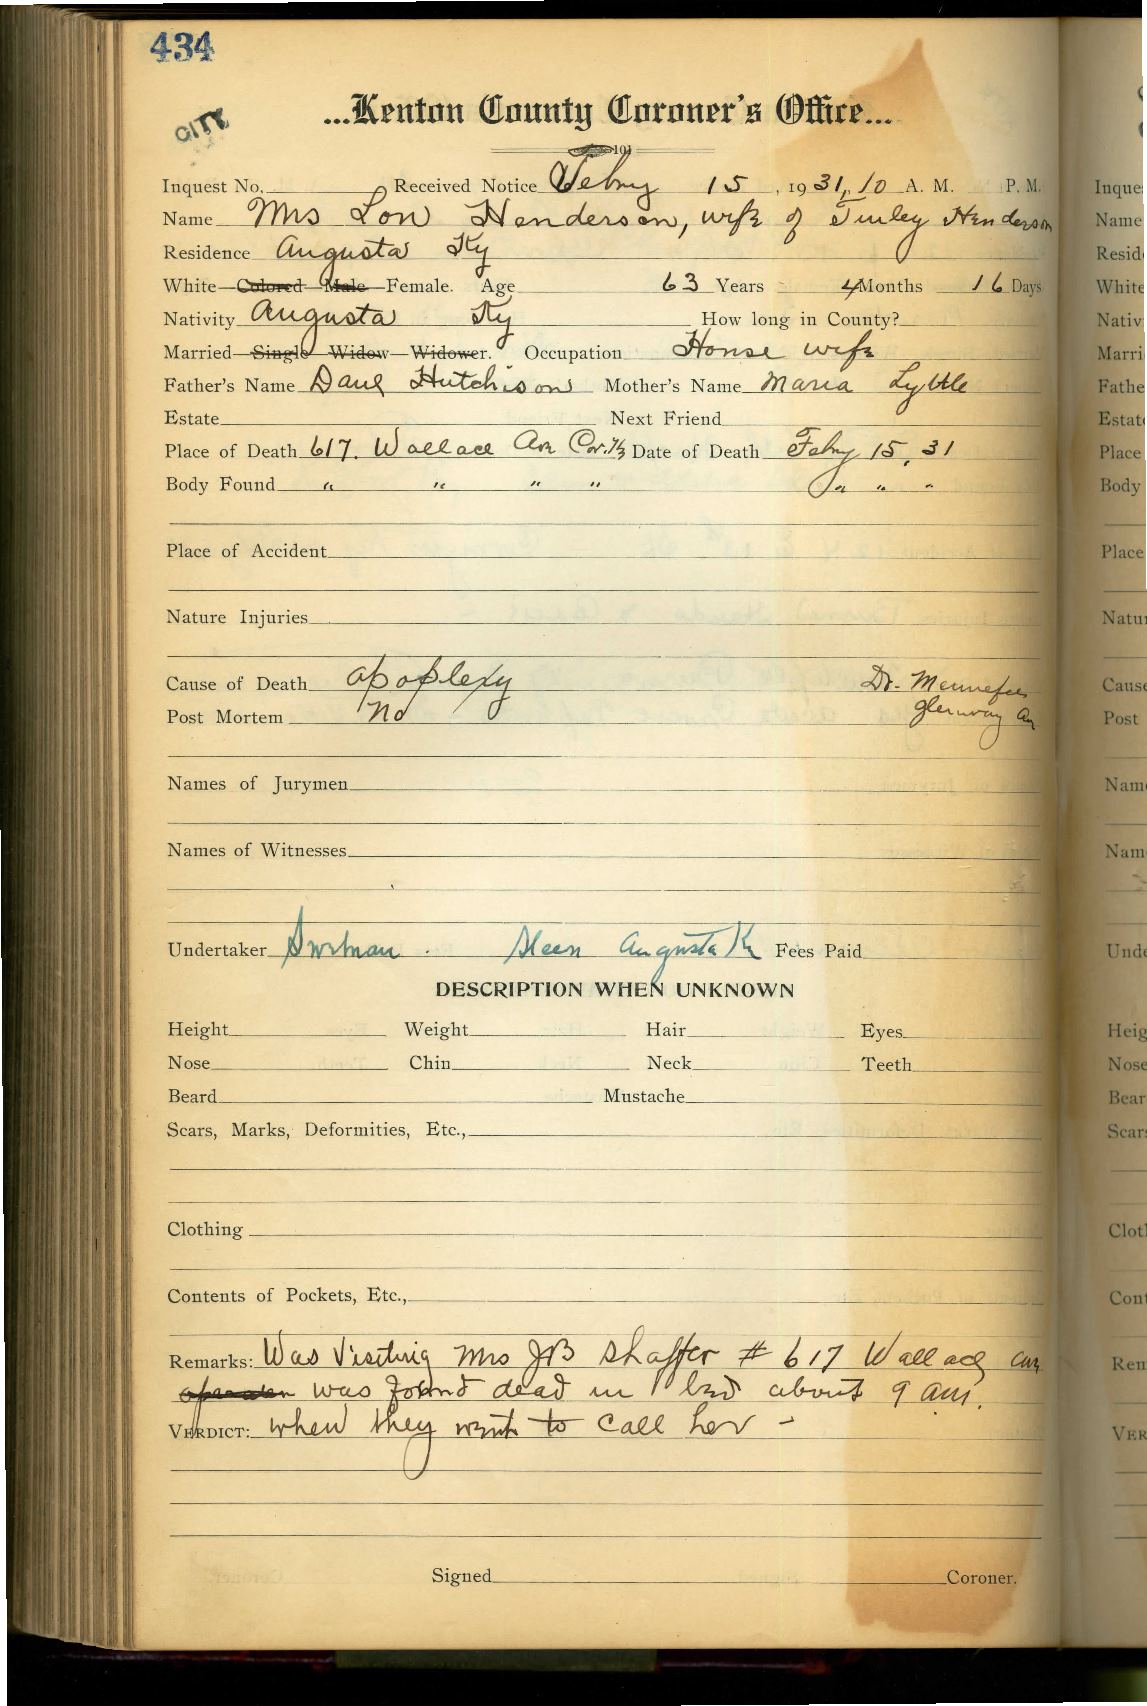 434
CITY
...Kenton County Coroner's Office...
101
Inquest No. Received Notice Febry 15, 1931, 10 A. M. P. M.
Name Mrs Lou Henderson, wife of Finley Henderson
Residence Augusta Ky
White Colored Male Female. Age 63 Years 4 Months 16 Days
Nativity Augusta Ky How long in County?
Married Single Widow Widower. Occupation House wife
Father's Name Danl Hutchison Mother's Name Maria Lyttle
Estate Next Friend
Place of Death 617. Wallace Av Cov. Ky Date of Death Febry 15, 31
Body Found " " " " " " "
Place of Accident
Nature Injuries
Cause of Death apoplexy Dr. Mennefee
Post Mortem No Glenway Av
Names of Jurymen
Names of Witnesses
Undertaker Augusta Ky Fees Paid
DESCRIPTION WHEN UNKNOWN
Height Weight Hair Eyes
Nose Chin Neck Teeth
Beard Mustache
Scars, Marks, Deformities, Etc.,
Clothing
Contents of Pockets, Etc.,
Remarks: Was Visiting Mrs JB Shaffer # 617 Wallace ave
was found dead in bed about 9 am.
VERDICT: when they went to call her -
Signed Coroner.
Inque
Name
Resid
White
Nativ
Marri
Fathe
Estat
Place
Body
Place
Natur
Cause
Post
Name
Nam
Unde
Heig
Nose
Bear
Scar
Clot
Cont
Rem
VER